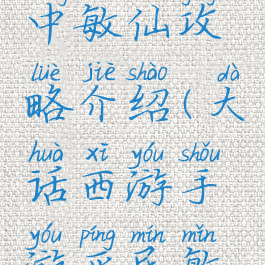 中敏仙攻
lüè jiē shào dà
略介绍(大
huà xī yóu shǒu
话西游手
yóu píng mín mǐn
游平民敏